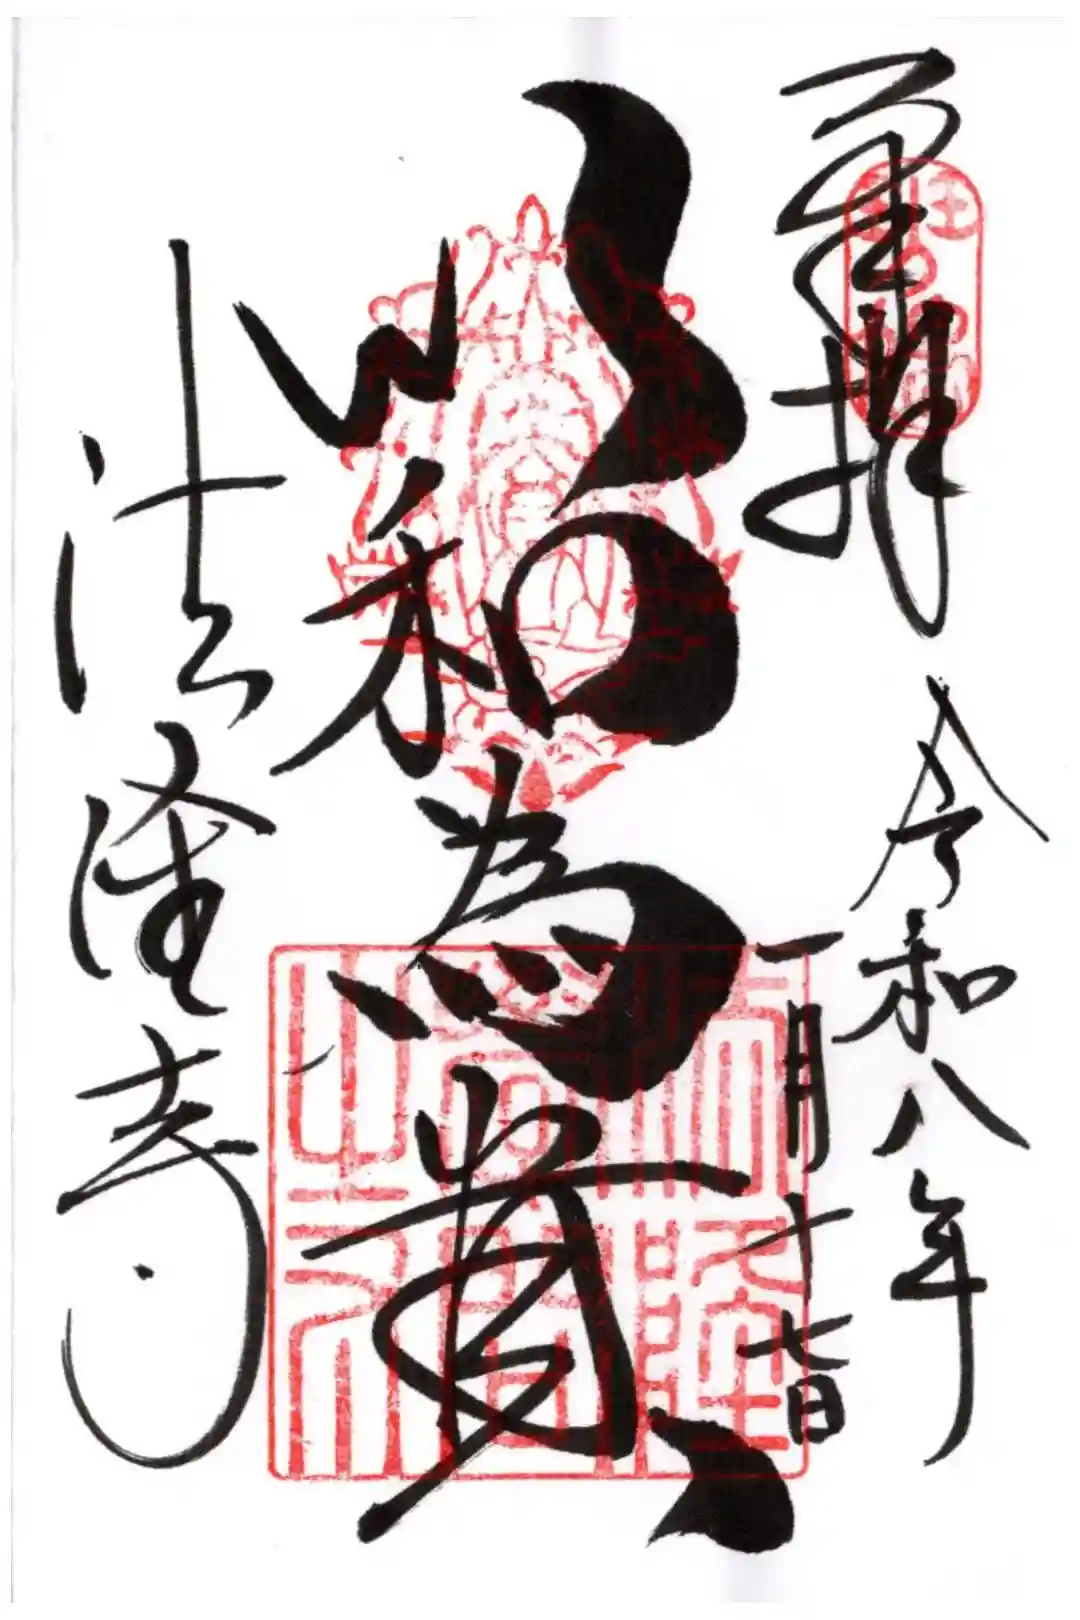 奉拝
令和八年
一月十七日
以和為貴
法隆寺